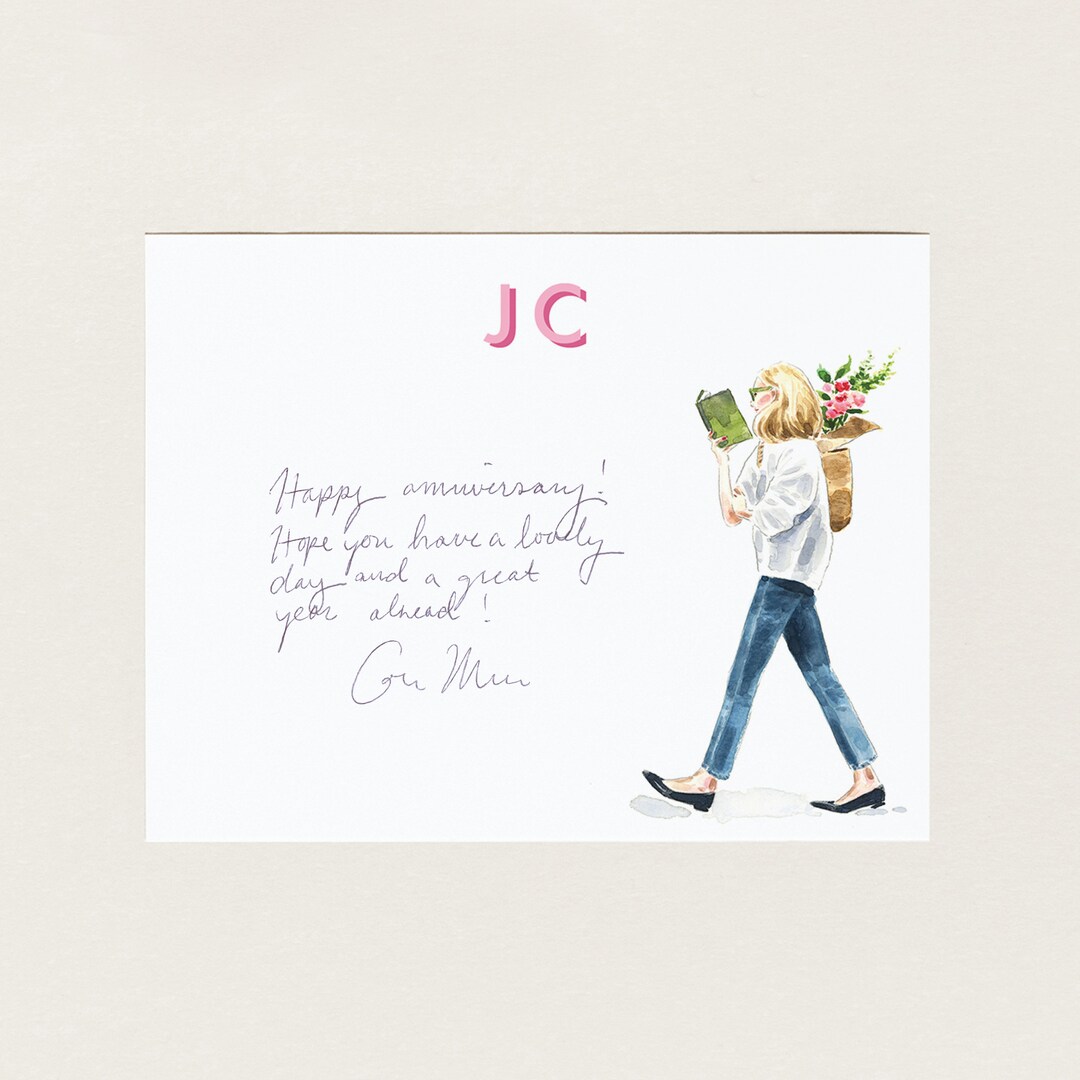 JC
Happy anniversary!
Hope you have a lovely
day and a great
year ahead!